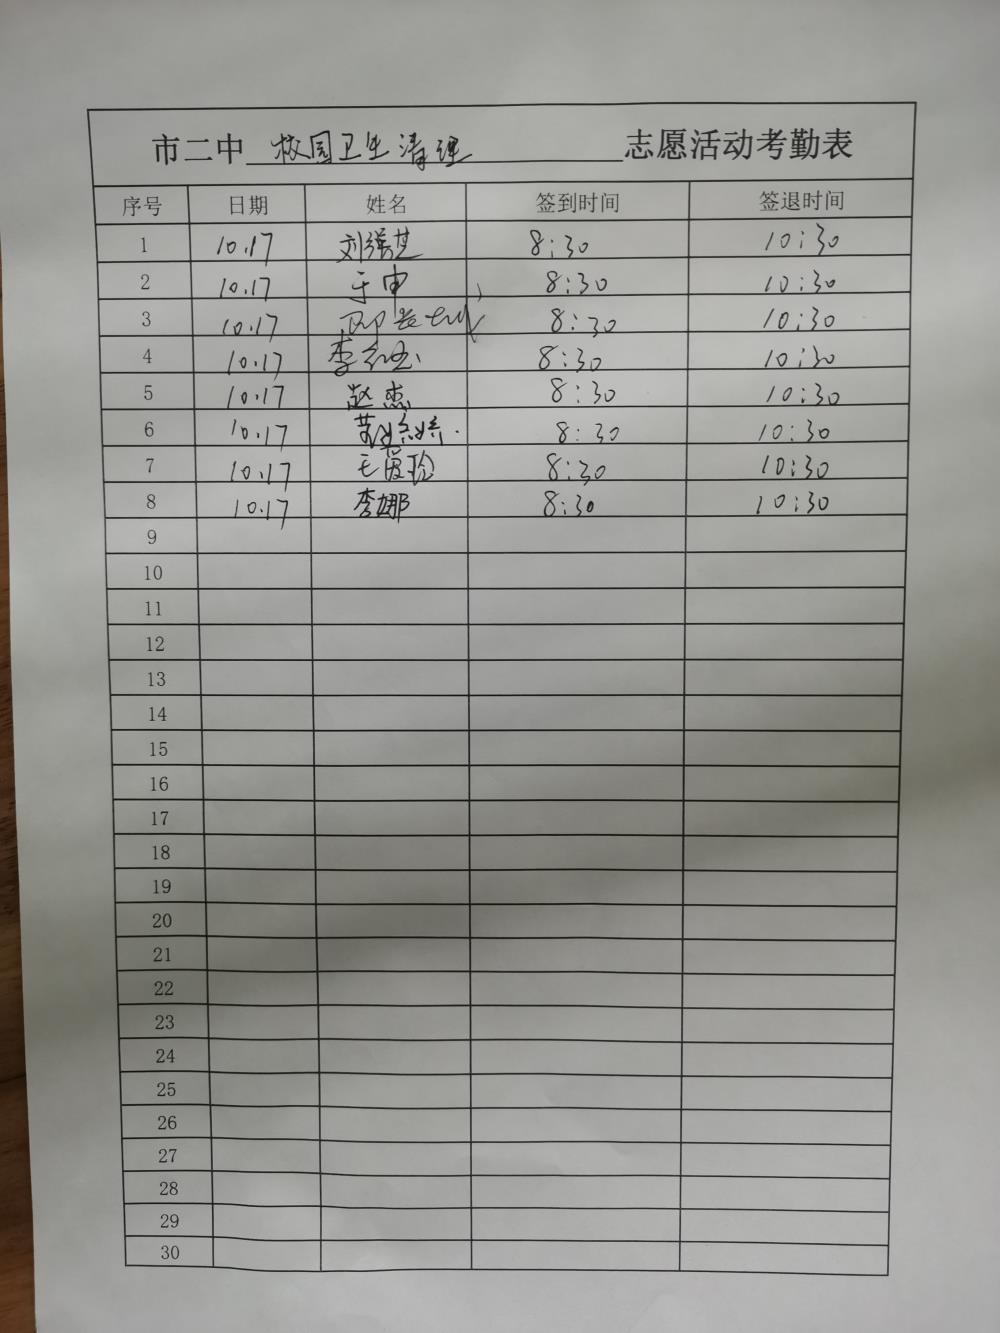 市二中 校园卫生清理 志愿活动考勤表
序号 日期 姓名 签到时间 签退时间
1 10.17 刘强基 8:30 10:30
2 10.17 于申 8:30 10:30
3 10.17 8:30 10:30
4 10.17 李红玉 8:30 10:30
5 10.17 赵杰 8:30 10:30
6 10.17 8:30 10:30
7 10.17 王爱玲 8:30 10:30
8 10.17 李娜 8:30 10:30
9
10
11
12
13
14
15
16
17
18
19
20
21
22
23
24
25
26
27
28
29
30